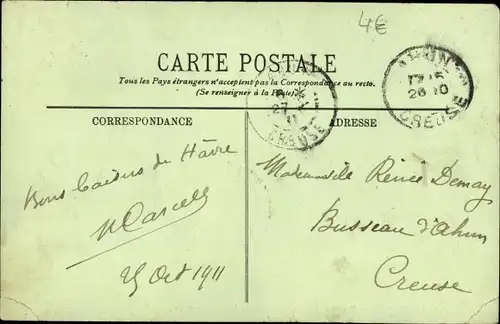 4€
CARTE POSTALE
Tous les Pays étrangers n'acceptent pas la Correspondance au recto.
(Se renseigner à la Poste)
AHUN
17 15
26 10
CREUSE
27
11
CREUSE
CORRESPONDANCE
ADRESSE
Bons baisers du Hâvre
Marcelle
25 Oct 1911
Mademoiselle Renée Demay
Busseau d'Ahun
Creuse